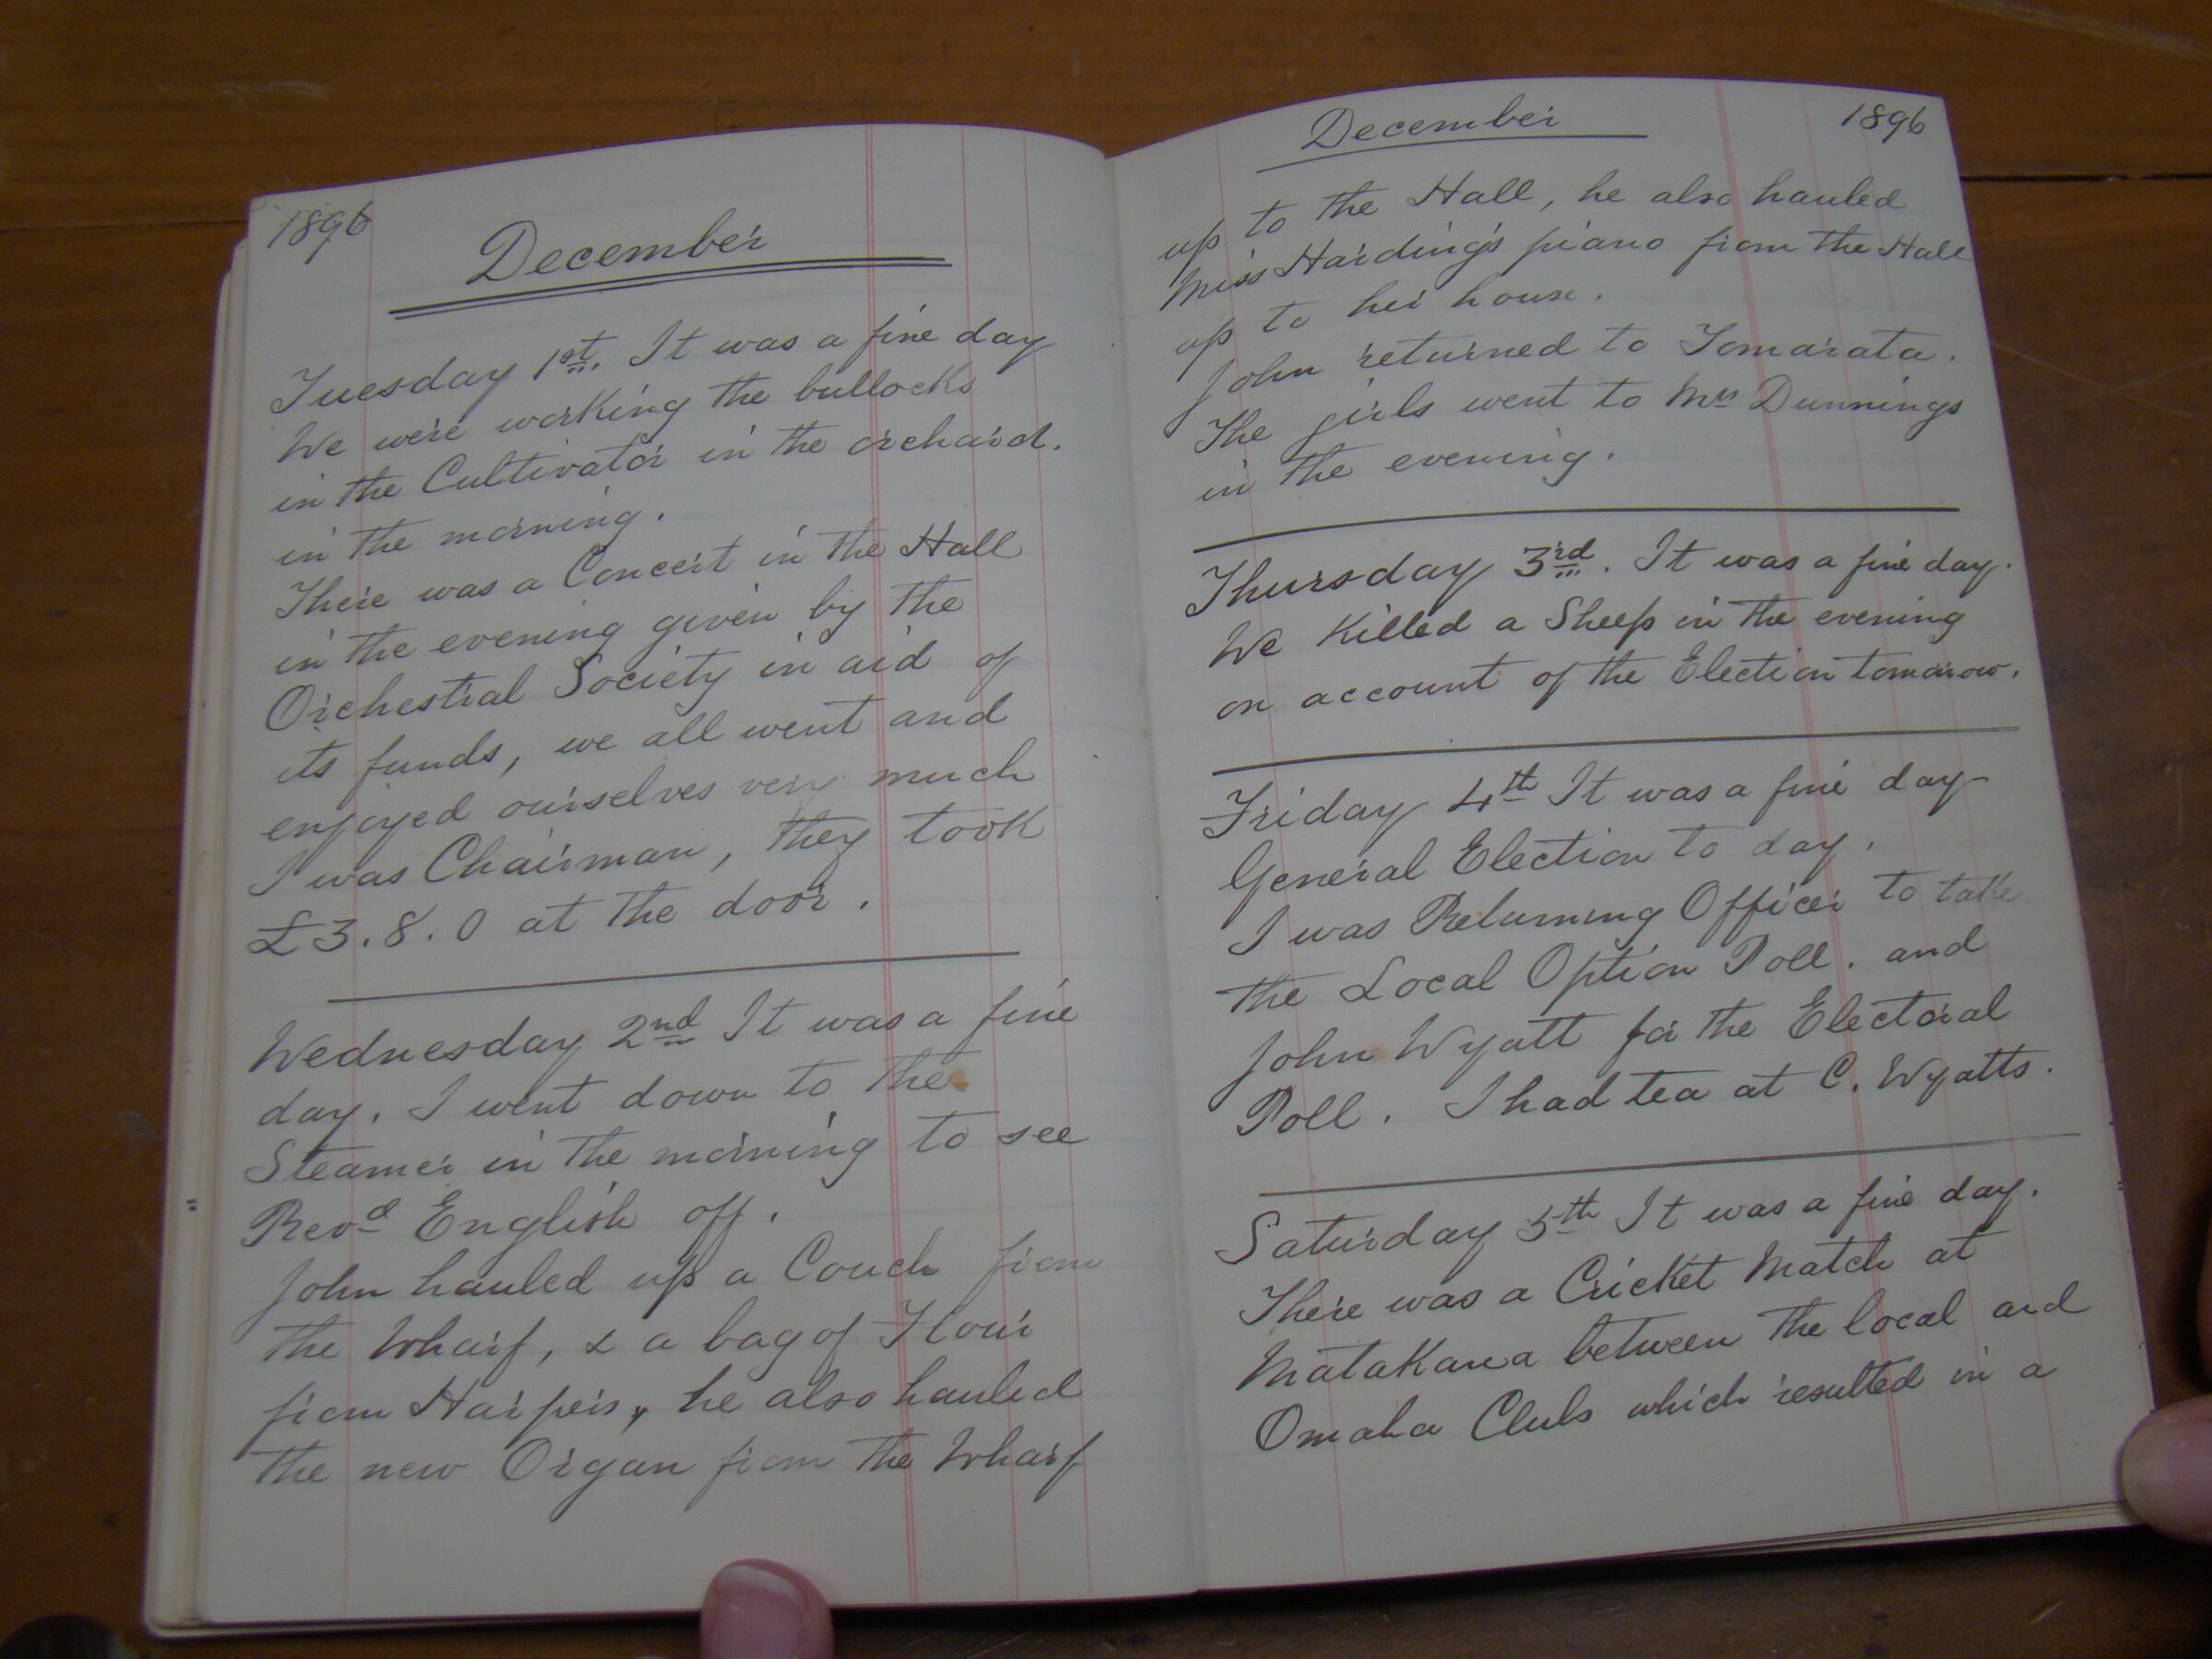 1896
December
Tuesday 1st. It was a fine day
We were working the bullocks
in the Cultivator in the orchard.
in the morning.
There was a Concert in the Hall
in the evening given by the
Orchestral Society in aid of
its funds, we all went and
enjoyed ourselves very much
I was Chairman, they took
£3.8.0 at the door.
Wednesday 2nd It was a fine
day. I went down to the
Steamer in the morning to see
Revd English off.
John hauled up a Couch from
the Wharf, & a bag of Flour
from Harpers, he also hauled
the new Organ from the Wharf
December 1896
up to the Hall, he also hauled
Miss Harding's piano from the Hall
up to her house.
John returned to Tomarata.
The girls went to Mrs Dunnings
in the evening.
Thursday 3rd. It was a fine day.
We Killed a Sheep in the evening
on account of the Election tomorow.
Friday 4th It was a fine day
General Election to day.
I was Returning Officer to take
the Local Option Poll. and
John Wyatt for the Electoral
Poll. I had tea at C. Wyatts.
Saturday 5th It was a fine day.
There was a Cricket Match at
Matakana between the local and
Omaha Clubs which resulted in a